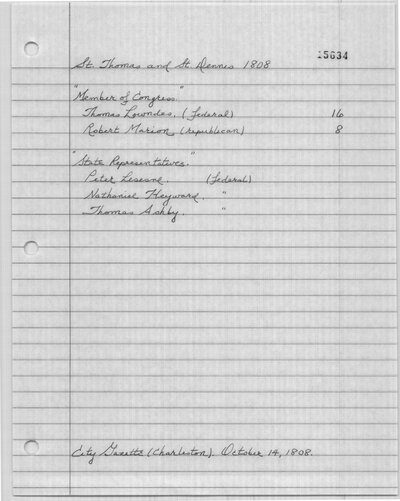 15634
St. Thomas and St. Dennis 1808
"Member of Congress."
Thomas Lowndes. (Federal) 16
Robert Marion (republican) 8
"State Representatives."
Peter Lesesne. (Federal)
Nathaniel Heyward. "
Thomas Ashby. "
City Gazette (Charleston). October 14, 1808.